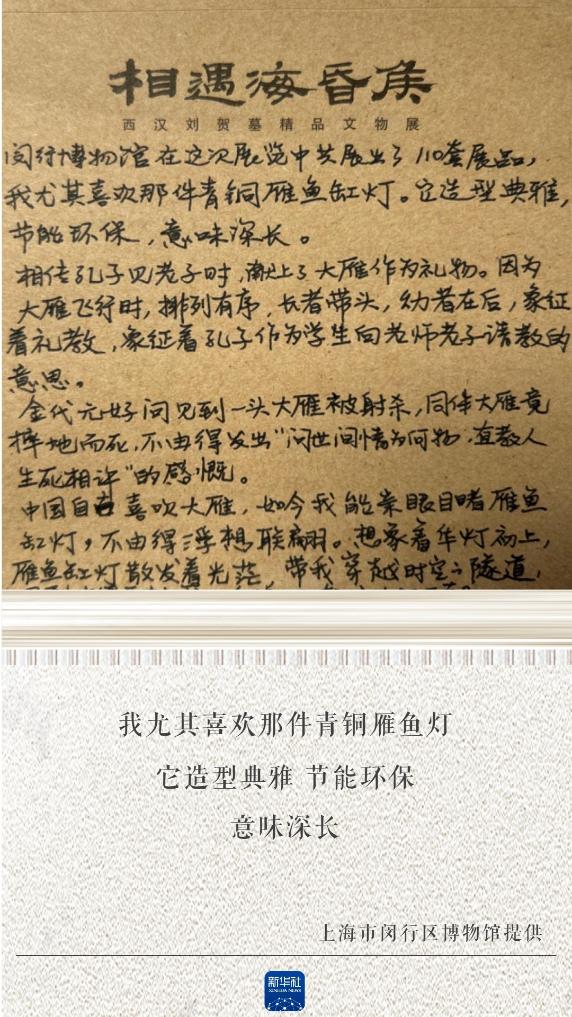 相遇海昏侯
西汉刘贺墓精品文物展
闵行博物馆在这次展览中共展出了110套展品，
我尤其喜欢那件青铜雁鱼缸灯。它造型典雅，
节能环保，意味深长。
相传孔子见老子时，献上了大雁作为礼物。因为
大雁飞行时，排列有序，长者带头，幼者在后，象征
着礼教，象征着孔子作为学生向老师老子请教的
意思。
金代元好问见到一头大雁被射杀，同伴大雁竟
摔地而死，不由得发出“问世间情为何物，直教人
生死相许”的感慨。
中国自古喜欢大雁，如今我能亲眼目睹雁鱼
缸灯，不由得浮想联翩。想象着华灯初上，
雁鱼缸灯散发着光茫，带我穿越时空之隧道，
我尤其喜欢那件青铜雁鱼灯
它造型典雅 节能环保
意味深长
上海市闵行区博物馆提供
新华社
XINHUA NEWS